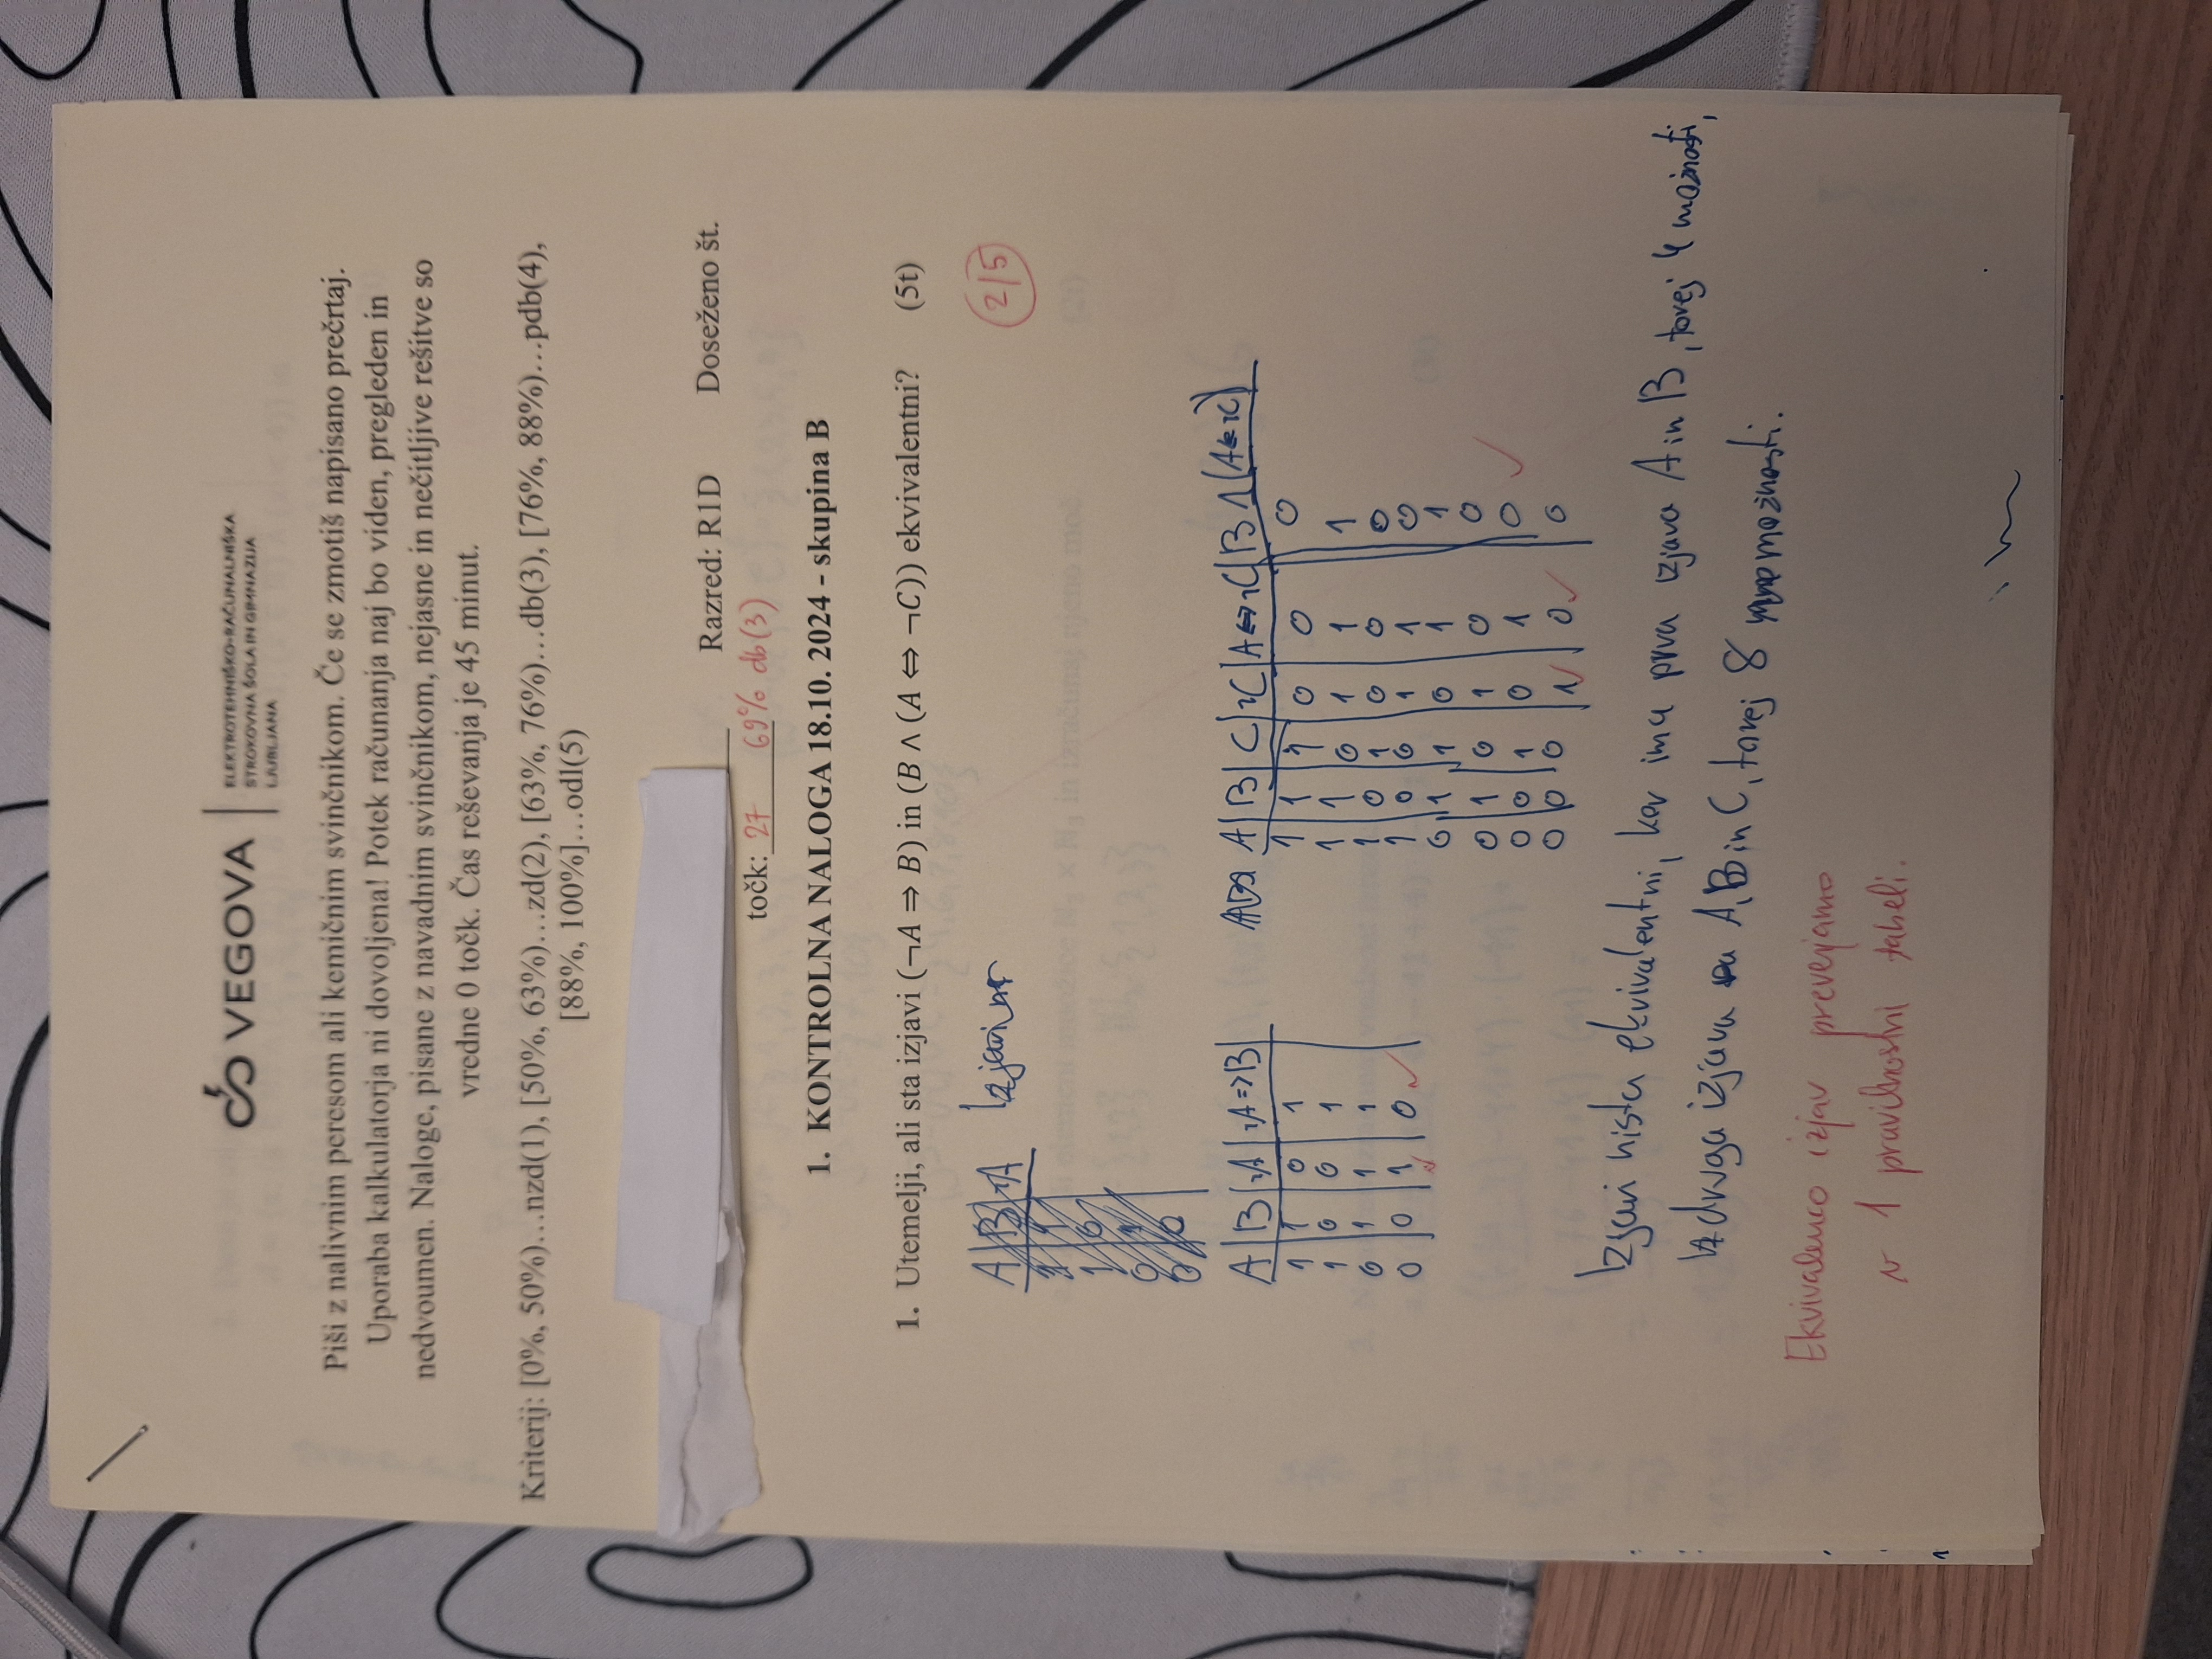 VEGOVA
ELEKTROTEHNIŠKO-RAČUNALNIŠKA
STROKOVNA ŠOLA IN GIMNAZIJA
LJUBLJANA
Piši z nalivnim peresom ali kemičnim svinčnikom. Če se zmotiš napisano prečrtaj.
Uporaba kalkulatorja ni dovoljena! Potek računanja naj bo viden, pregleden in
nedvoumen. Naloge, pisane z navadnim svinčnikom, nejasne in nečitljive rešitve so
vredne 0 točk. Čas reševanja je 45 minut.
Kriterij: [0%, 50%)…nzd(1), [50%, 63%)…zd(2), [63%, 76%)…db(3), [76%, 88%)…pdb(4),
[88%, 100%]…odl(5)
Razred: R1D Doseženo št.
točk: 27 69% db(3)
1. KONTROLNA NALOGA 18.10. 2024 - skupina B
1. Utemelji, ali sta izjavi (¬A ⇒ B) in (B ∧ (A ⇔ ¬C)) ekvivalentni? (5t)
2/5
A B ¬A
1 1
1 0
0 1
0 0
A B ¬A ¬A=>B
1 1 0 1
1 0 0 1
0 1 1 1
0 0 1 0
A B C ¬C A⇔¬C B ∧ (A⇔¬C)
1 1 1 0 0 0
1 1 0 1 1 1
1 0 1 0 0 0
1 0 0 1 1 0
0 1 1 0 1 1
0 1 0 1 0 0
0 0 1 0 1 0
0 0 0 1 0 0
Izjavi nista ekvivalentni, ker ima prva izjava A in B, tovej 4 možnosti,
druga izjava pa A, B in C, tovej 8 možnosti.
Ekvivalenco izjav preverjamo
v 1 pravilnostni tabeli.